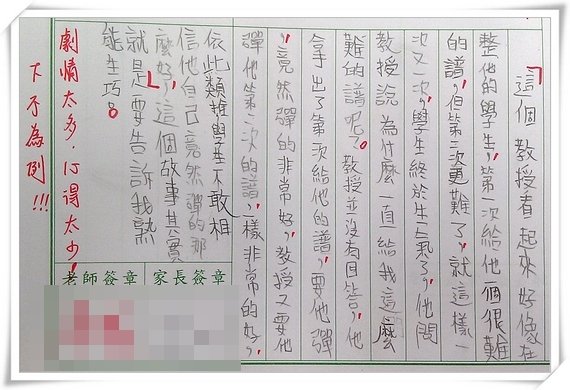 「這個教授看起來好像在
整他的學生，第一次給他一個很難
的譜，但第二次更難了，就這樣一
次又一次，學生終於生气了，他問
教授說為什麼一直給我這麼
難的譜呢？教授並沒有回答，他
拿出了第一次給他的譜，要他彈
，竟然彈的非常好，教授又要他
彈他第二次的譜，一樣非常的好，
依此類推學生不敢相
信他自己竟然彈的那
麼好，」這個故事其實
就是要告訴我熟
能生巧。
劇情太多，心得太少！
下不為例!!!
家長簽章
老師簽章